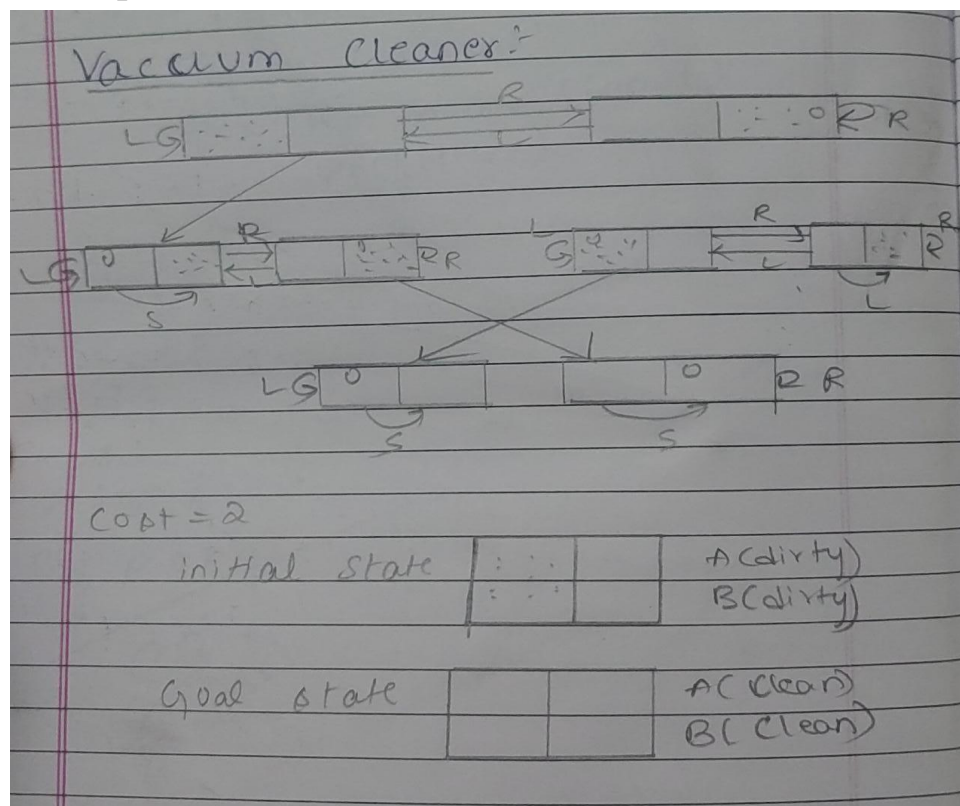 Vaccum Cleaner:-
R
L R
L
R R
L R L R
L L
S L
L R
S S
Cost = 2
initial state A(dirty)
B(dirty)
Goal state A( Clean)
B( Clean)